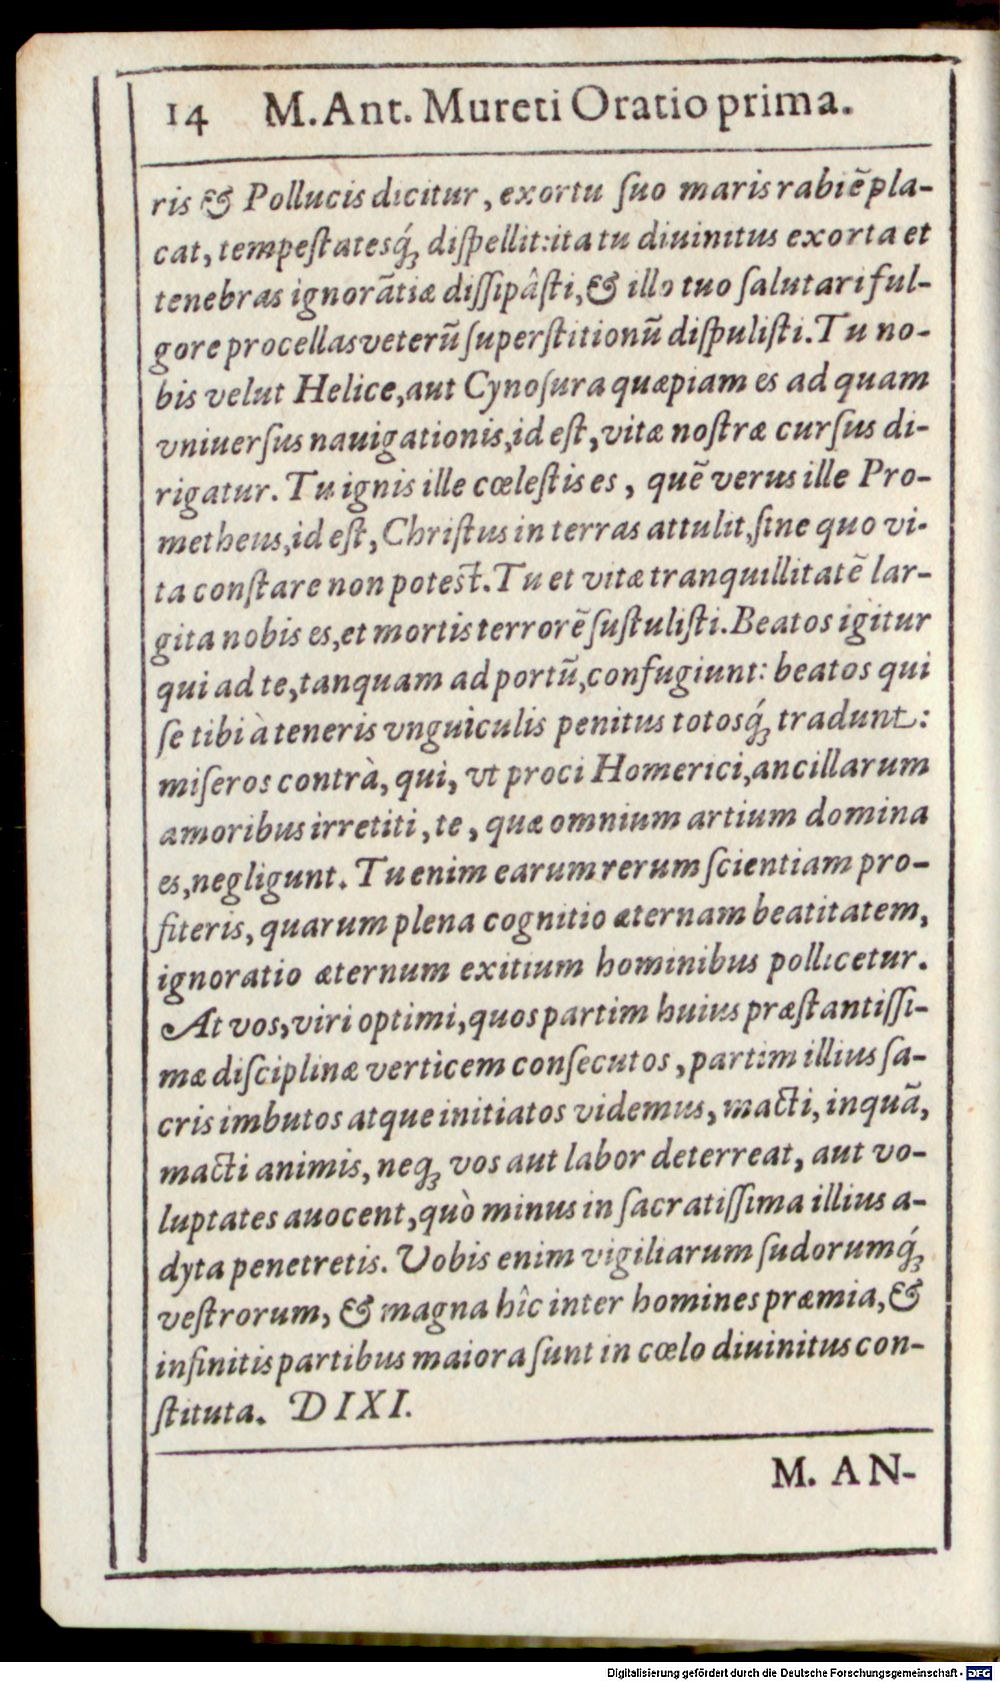 14 M. Ant. Mureti Oratio prima.
ris & Pollucis dicitur, exortu ſuo maris rabiẽ pla-
cat, tempeſtatesq́ꝫ diſpellit: ita tu diuinitus exorta et
tenebras ignorãtiæ diſſipâſti, & illo tuo ſalutari ful-
gore procellas veterũ ſuperſtitionũ diſpuliſti. Tu no-
bis velut Helice, aut Cynoſura quæpiam es ad quam
vniuerſus nauigationis, id eſt, vitæ noſtræ curſus di-
rigatur. Tu ignis ille cœleſtis es, quẽ verus ille Pro-
metheus, id eſt, Chriſtus in terras attulit, ſine quo vi-
ta conſtare non poteſt. Tu et vitæ tranquillitatẽ lar-
gita nobis es, et mortis terrorẽ ſuſtuliſti. Beatos igitur
qui ad te, tanquam ad portũ, confugiunt: beatos qui
ſe tibi à teneris vnguiculis penitus totosq́ꝫ tradunt:
miſeros contrà, qui, vt proci Homerici, ancillarum
amoribus irretiti, te, quæ omnium artium domina
es, negligunt. Tu enim earum rerum ſcientiam pro-
fiteris, quarum plena cognitio æternam beatitatem,
ignoratio æternum exitium hominibus pollicetur.
At vos, viri optimi, quos partim huius præſtantiſſi-
mæ diſciplinæ verticem conſecutos, partim illius ſa-
cris imbutos atque initiatos videmus, macti, inquã,
macti animis, neqꝫ vos aut labor deterreat, aut vo-
luptates auocent, quò minus in ſacratiſſima illius a-
dyta penetretis. Vobis enim vigiliarum ſudorumq́ꝫ
veſtrorum, & magna hîc inter homines præmia, &
infinitis partibus maiora ſunt in cœlo diuinitus con-
ſtituta. DIXI.
M. AN-
Digitalisierung gefördert durch die Deutsche Forschungsgemeinschaft - DFG